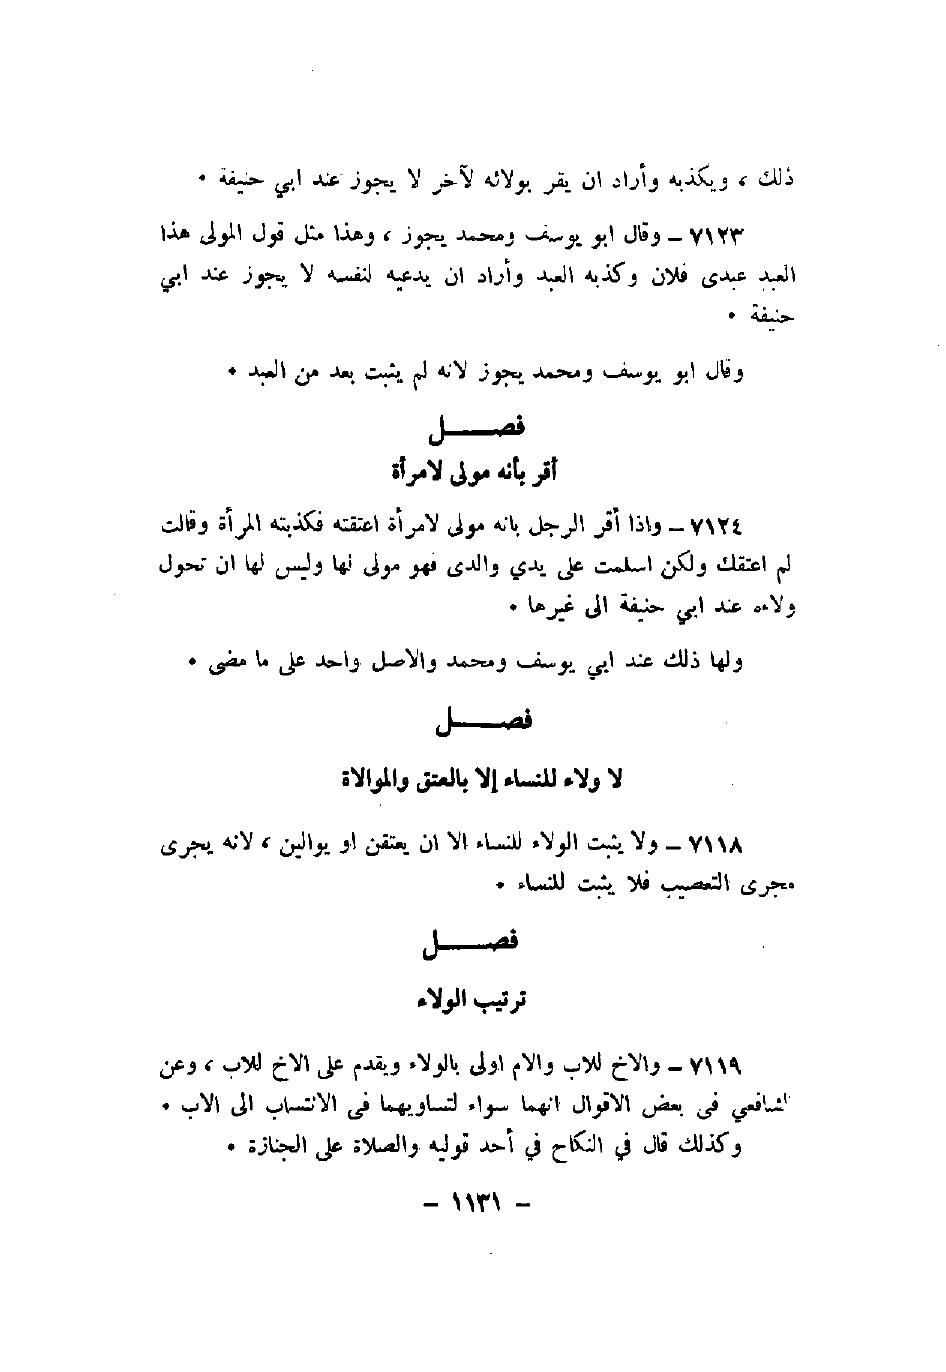 ذلك ، ويكذبه وأراد ان يقر بولائه لآخر لا يجوز عند ابي حنيفة .
٧١٢٣ – وقال ابو يوسف ومحمد يجوز ، وهذا مثل قول المولى هذا
العبد عبدى فلان وكذبه العبد وأراد ان يدعيه لنفسه لا يجوز عند ابي
حنيفة .
وقال ابو يوسف ومحمد يجوز لانه لم يثبت بعد من العبد .
فصـــــل
أقر بأنه مولى لامرأة
٧١٢٤ – واذا أقر الرجل بانه مولى لامرأة اعتقته فكذبته المرأة وقالت
لم اعتقك ولكن اسلمت على يدي والدى فهو مولى لها وليس لها ان تحول
ولاءه عند ابي حنيفة الى غيرها .
ولها ذلك عند ابي يوسف ومحمد والاصل واحد على ما مضى .
فصـــــل
لا ولاء للنساء إلا بالعتق والموالاة
٧١١٨ – ولا يثبت الولاء للنساء الا ان يعتقن او يوالين ، لانه يجرى
مجرى التعصيب فلا يثبت للنساء .
فصـــــل
ترتيب الولاء
٧١١٩ – والاخ للاب والام اولى بالولاء ويقدم على الاخ للاب ، وعن
الشافعي فى بعض الاقوال انهما سواء لتساويهما فى الانتساب الى الاب .
وكذلك قال في النكاح في أحد قوليه والصلاة على الجنازة .
– ١١٣١ –